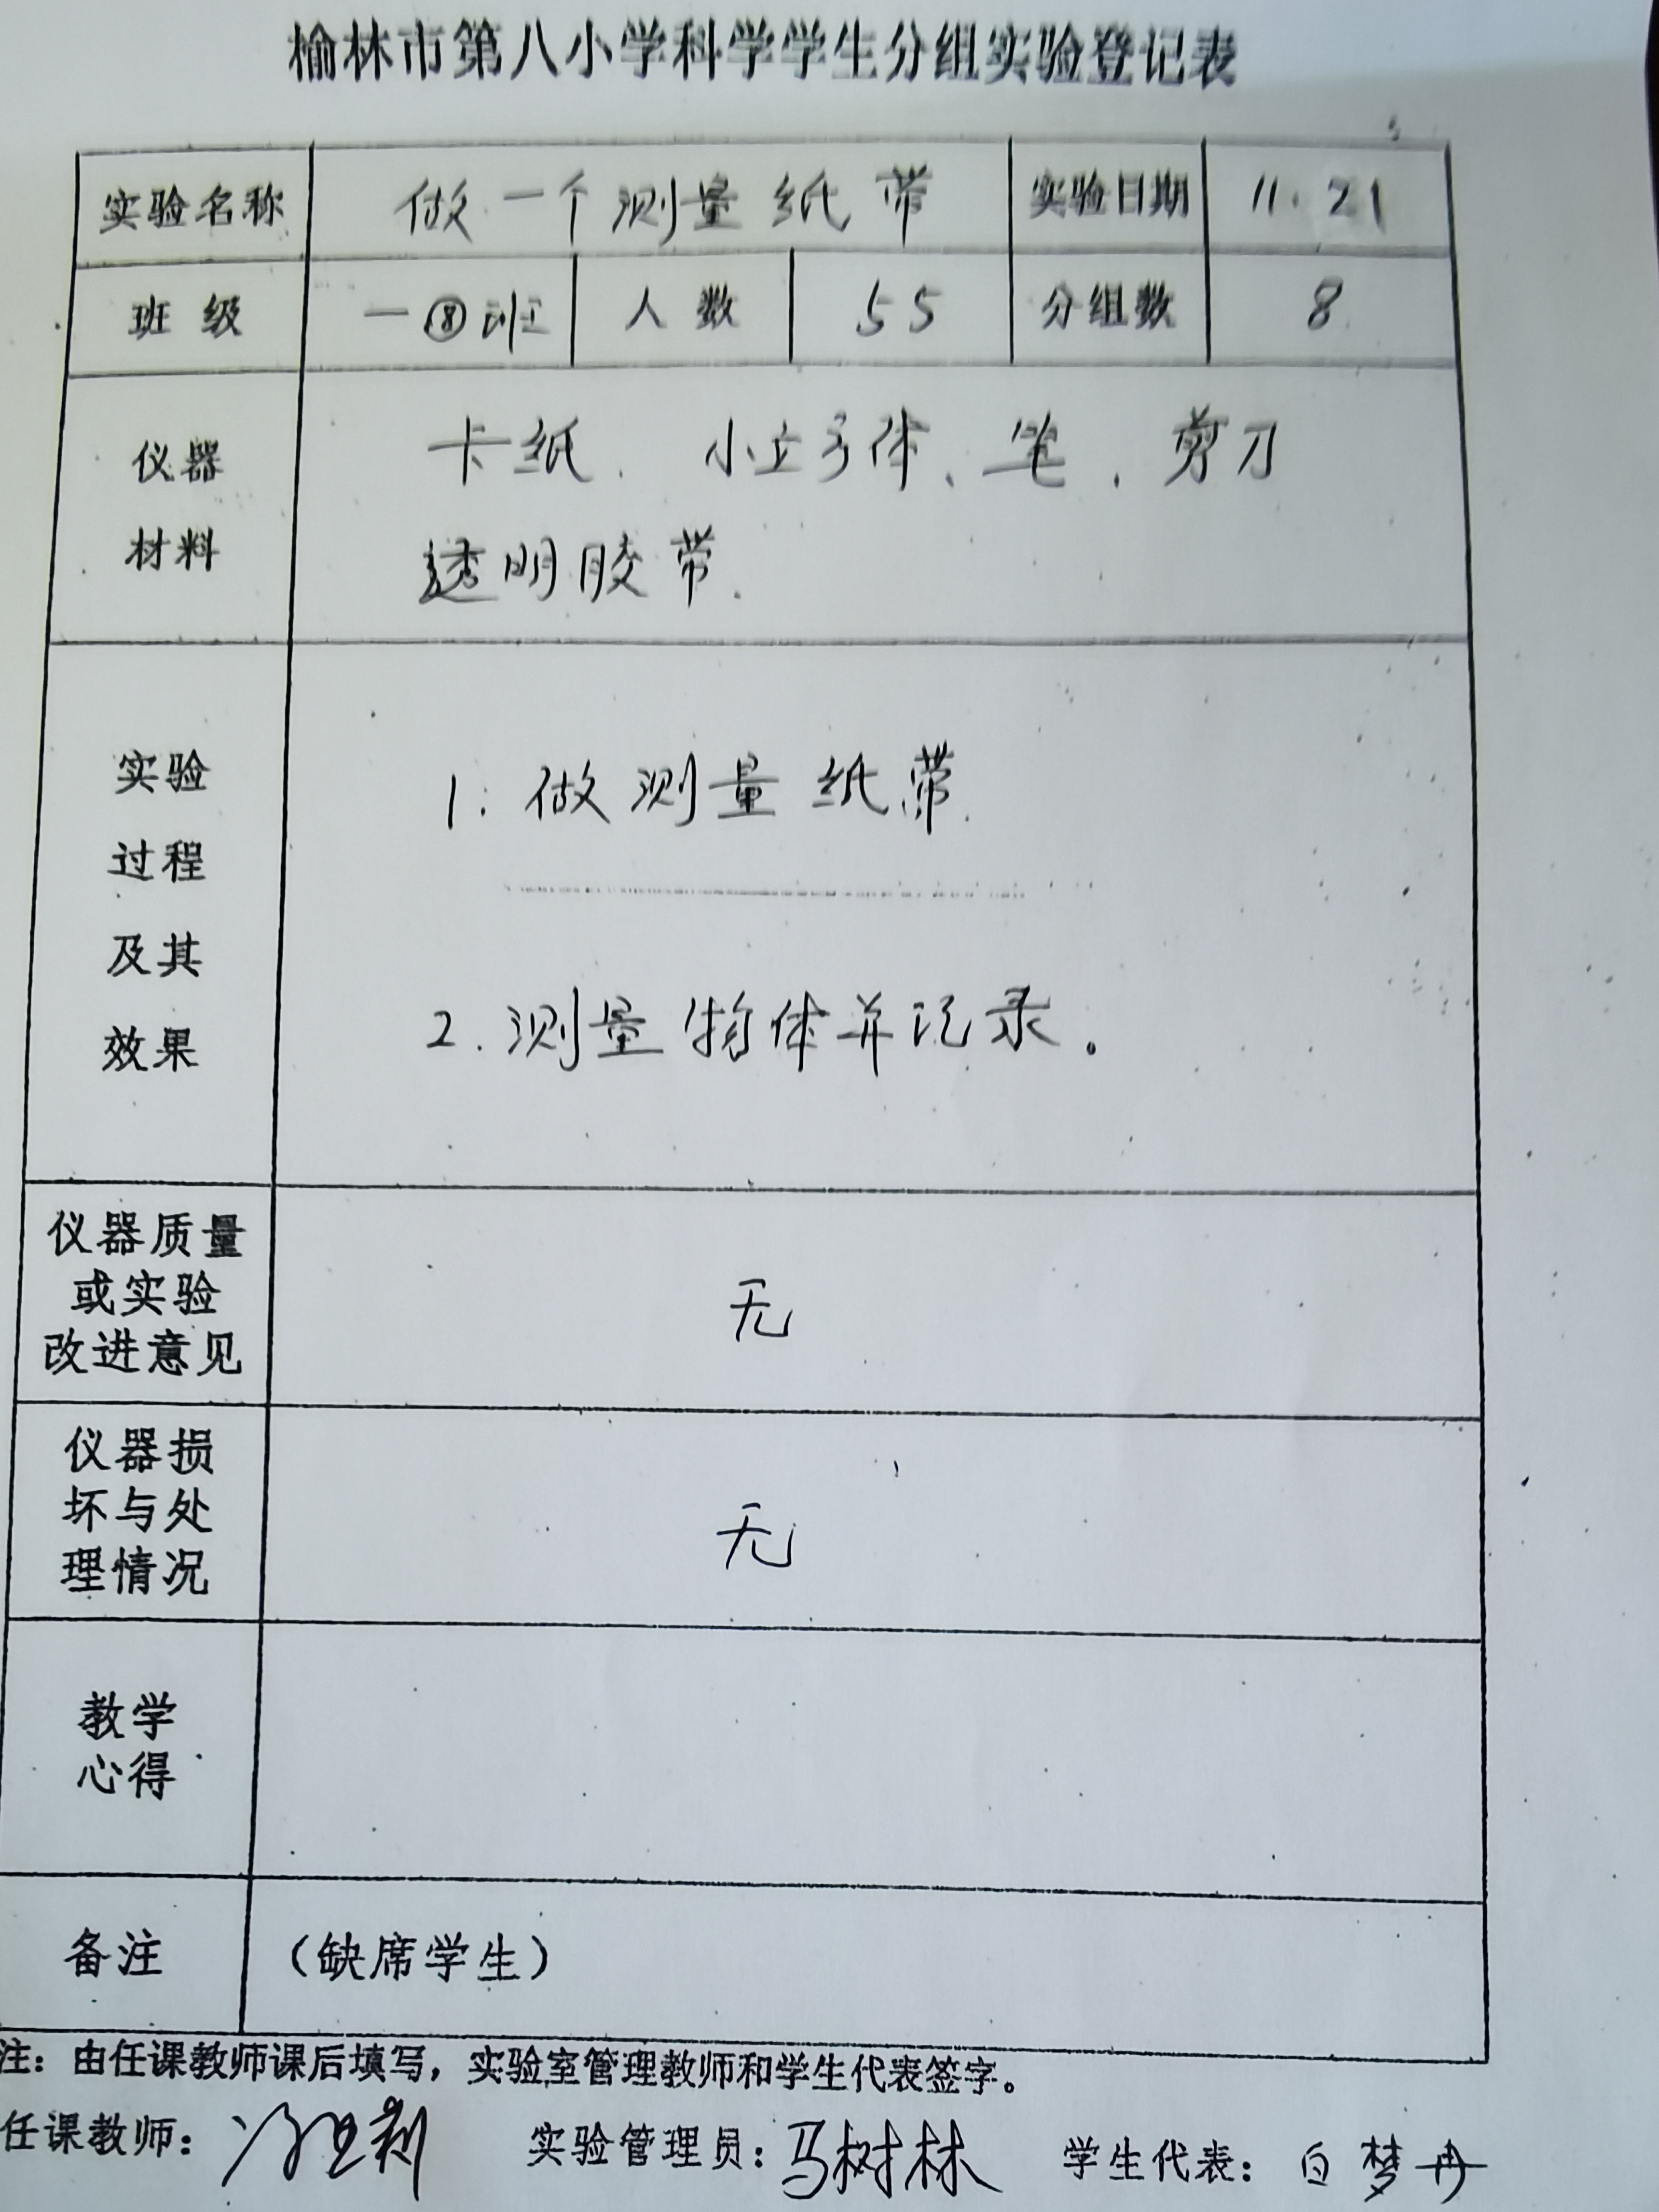 榆林市第八小学科学学生分组实验登记表
实验名称 做一个测量纸带 实验日期 11.21
班级 一⑧班 人数 55 分组数 8
仪器
材料
卡纸、小立方体、笔、剪刀
透明胶带.
实验
过程
及其
效果
1. 做测量纸带.
2. 测量物体并记录。
仪器质量
或实验
改进意见
无
仪器损
坏与处
理情况
无
教学
心得
备注 （缺席学生）
注：由任课教师课后填写，实验室管理教师和学生代表签字。
任课教师： 实验管理员：马树林 学生代表：白梦丹